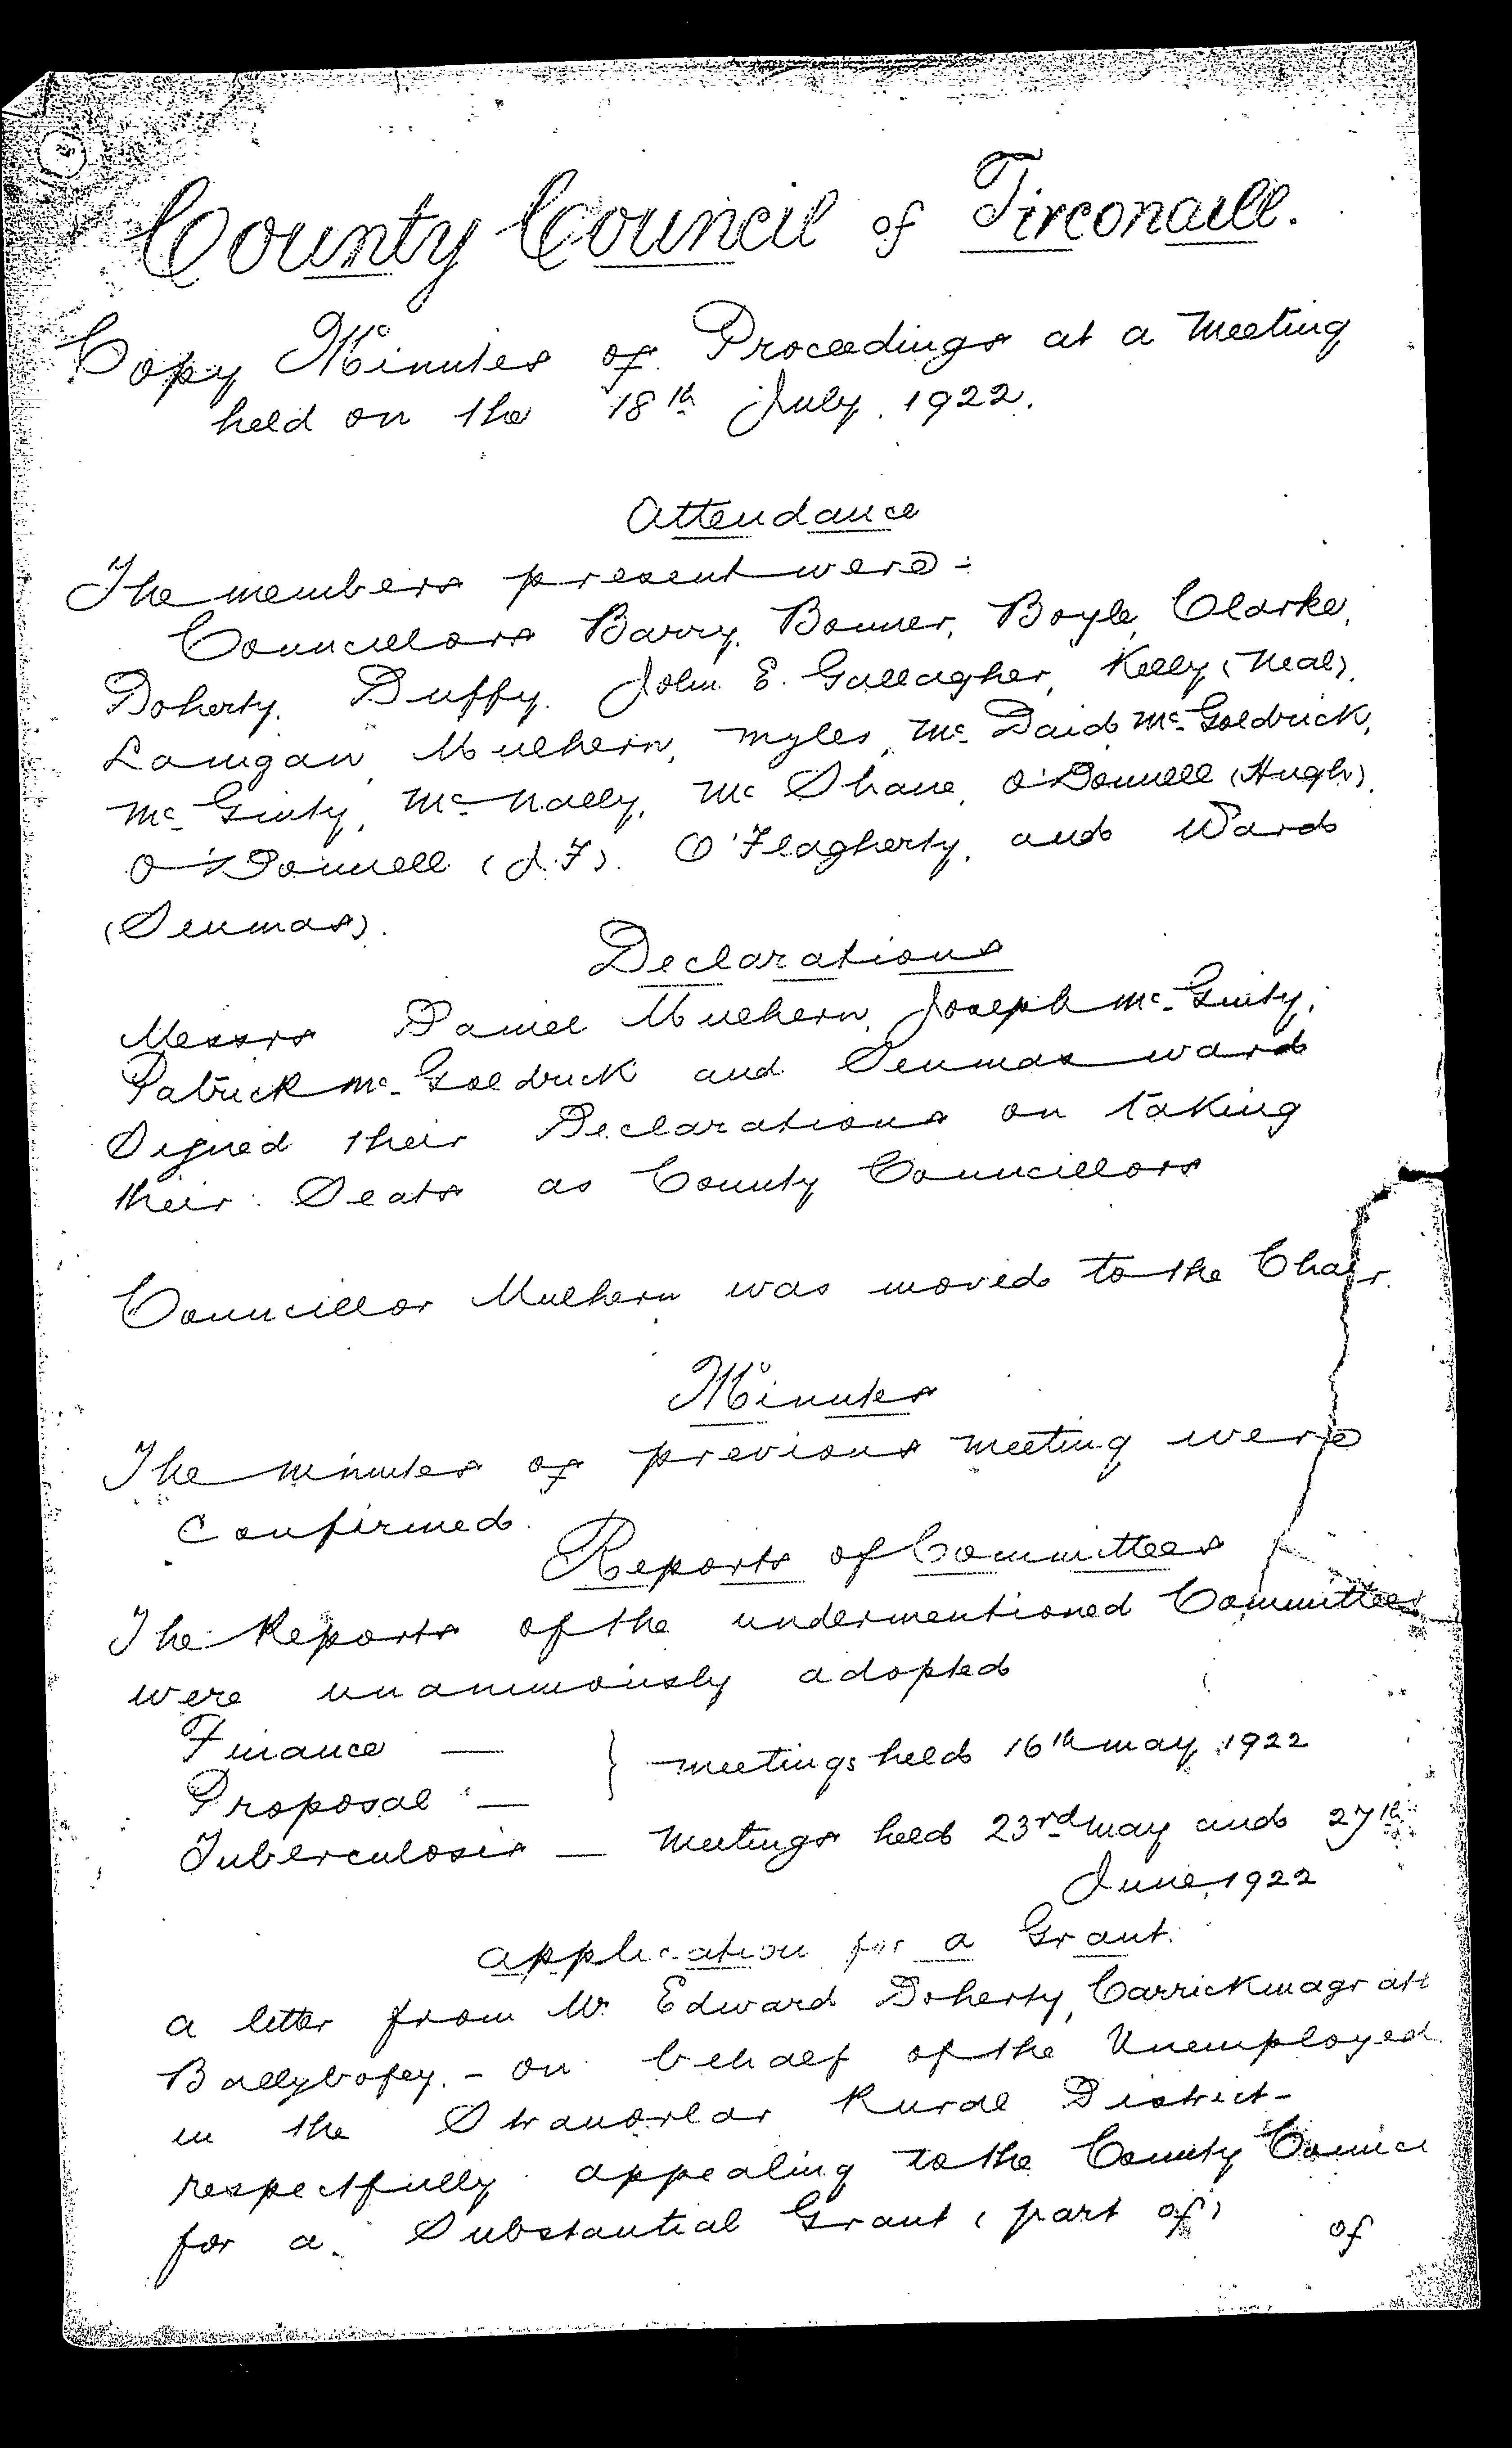 County Council of Tirconaill.
Copy Minutes of Proceedings at a Meeting
held on the 18th July. 1922.
Attendance
The members present were:-
Councillors Barry, Bonner, Boyle, Clarke,
Doherty, Duffy, John E. Gallagher, Kelly (Neal),
Lanigan, Mulhern, Myles, McDaid, McGoldrick,
McGinty, McNally, McShane, O'Donnell (Hugh),
O'Donnell (J.F). O'Flagherty, and Ward
(Seumas).
Declarations
Messrs Daniel Mulhern, Joseph McGinty,
Patrick McGoldrick and Seumas Ward
Signed their Declarations on taking
their Seats as County Councillors
Councillor Mulhern was moved to the Chair.
Minutes
The minutes of previous meeting were
Confirmed.
Reports of Committees
The Reports of the undermentioned Committees
were unanimously adopted
Finance —
} meetings held 16th May, 1922
Proposal —
Tuberculosis — Meetings held 23rd May and 27th
June, 1922
Application for a Grant.
A letter from Mr Edward Doherty, Carrickmagrath
Ballybofey, - on behalf of the Unemployed
in the Stranorlar Rural District -
respectfully appealing to the County Council
for a Substantial Grant (part of) of